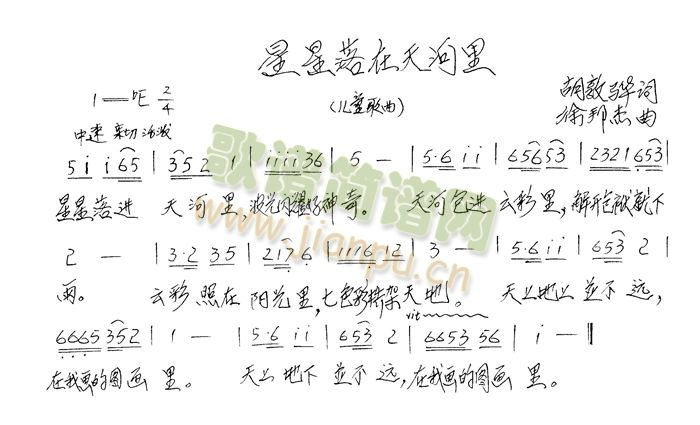 星星落在天河里
(儿童歌曲)
1=♭E 2/4
胡敦骅词
徐邦杰曲
中速 亲切 活泼
5 i i 6 5 | 3 5 2 1 | i i i i 3 6 | 5 — | 5·6 i i | 6 5 6 5 3 | 2 3 2 1 6 5 3 |
星星落进 天河里,波光闪耀好神奇。 天河包进 云彩里,解开包袱就下
2 — | 3·2 3 5 | 2 1 7 6 | 1 1 1 6 1 2 | 3 — | 5·6 i i | 6 5 3 2 |
雨。 云彩照在 阳光里,七色彩桥架天地。 天上地上 並不远,
rit
6 6 6 5 3 5 2 | 1 — | 5·6 i i | 6 5 3 2 | 6 6 5 3 5 6 | i — ‖
在我画的图画里。 天上地下 並不远,在我画的图画里。
歌谱简谱网
www.jianpu.cn